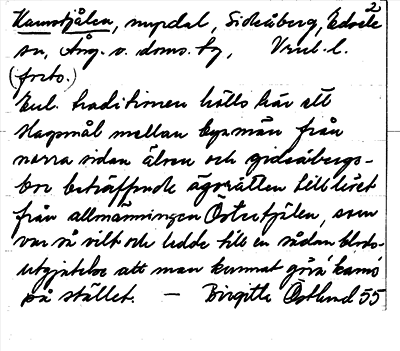 2
Kamstjålen, myrdal, Sidsåberg, Edsele
sn, Ång. o. doms. hg, Vnil. l.
(forts.)
Enl. traditionen hölls här ett
slagsmål mellan byamän från
norra sidan älven och gideåbergs-
bor beträffande äganrätten till höet
från allmänningen Östertjälen, som
var så vilt och ledde till en sådan blods-
utgjutelse att man kunnat göra kams
på stället. — Birgitta Östlund 55